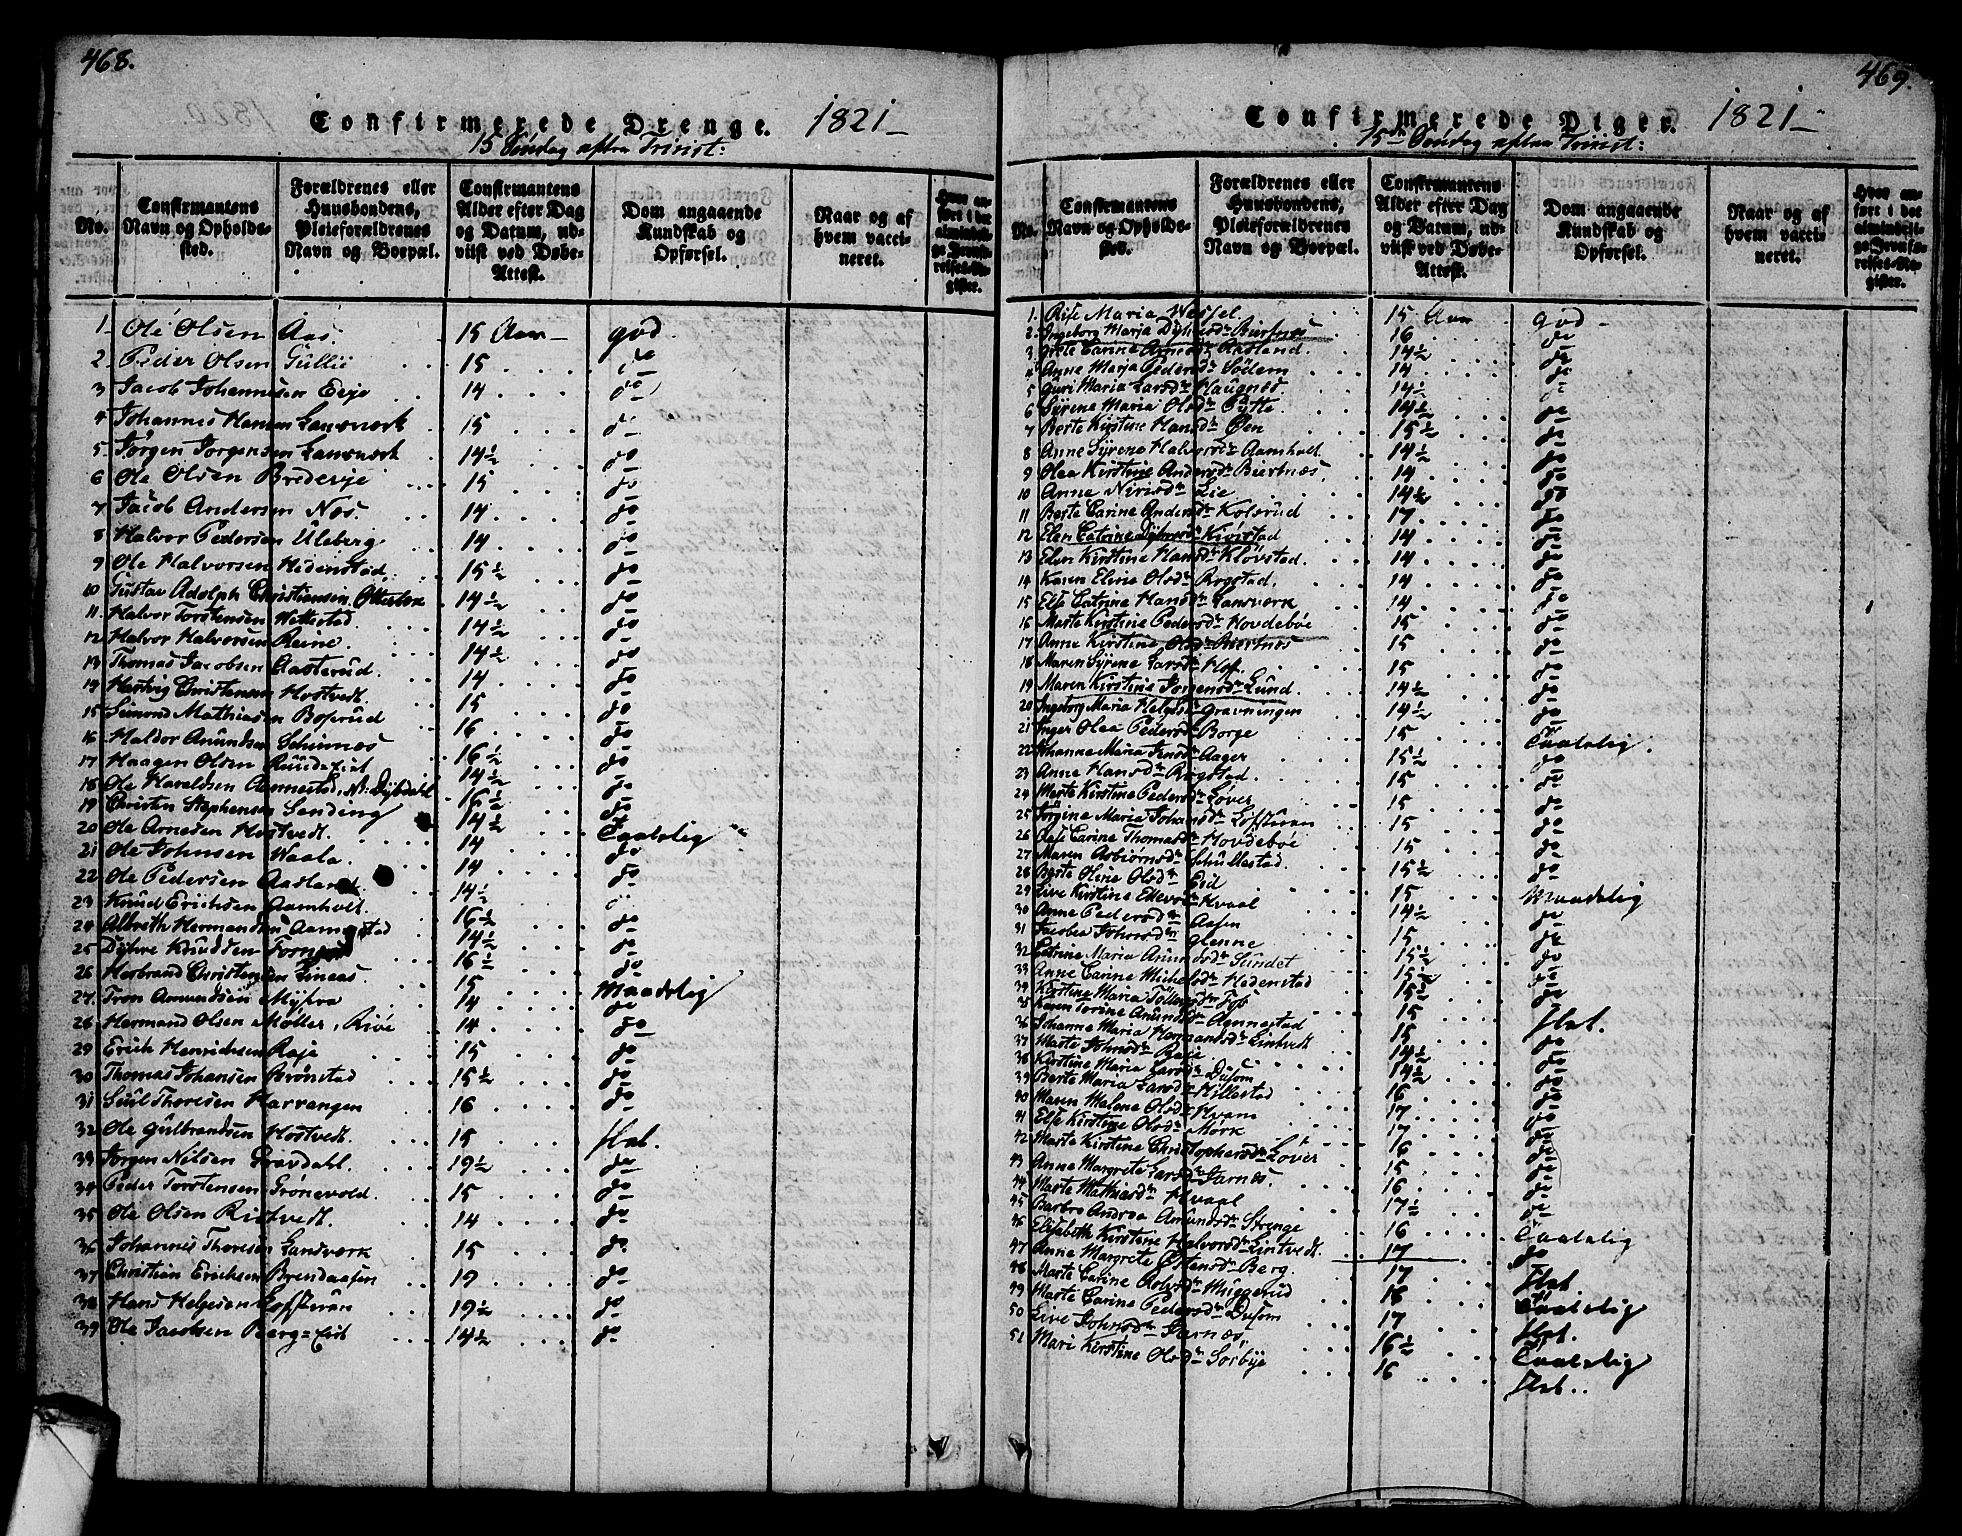 468.
Confirmerede Drenge. 1821
15 Søndag efter Trinit:
No.
Confirmantens Navn og Opholds-sted.
Forældrenes eller Huusbondens, Pleieforældrenes Navn og Boepæl.
Confirmantens Alder efter Dag og Datum, ud-viist ved Døbe-Attest.
Dom angaaende Kundskab og Opførsel.
Naar og af hvem vacci-neret.
Hvor an-ført i det almindeli-ge Jevnfø-relses-Re-gister.
1 Ole Olsen Aas. 15 Aar god.
2 Peder Olsen Gullie 15 do
3 Jacob Johannesen Eeje 14 do
4 Johannes Hansen Lansværk 15 do
5 Jørgen Jørgensen Lansværk 14½ do
6 Ole Olsen Bredeeje 15 do
7 Jacob Andersen Næs. 14 do
8 Halvor Pedersen Uleberg 14 do
9 Ole Halvorsen Hedenstad. 15½ do
10 Gustav Adolph Christiansen Otterbek 14½ do
11 Halvor Torstensen Wettestad. 14½ do
12 Halvor Halvorsen Reine. 14½ do
13 Thomas Jacobsen Aasterud. 14 do
14 Hartvig Christensen Hostvedt. 15 do
15 Simond Mathiasen Boserud 16 do
16 Haldor Amundsen Schinnæs 16½ do
17 Haagen Olsen Ruuds-Eiet 14½ do
18 Ole Haraldsen Aennestad, N: Dybdahl 16½ do
19 Christen Stephensen Sending 14½ do
20 Ole Arnesen Hostvedt. 14 Taalelig
21 Ole Johnsen Waala. 14 do
22 Ole Pedersen Aasland. 14½ do
23 Knud Erichsen Aamholt. 16½ do
24 Albreth Hermandsen Aannestad 14½ do
25 Dyhre Knudsen 16½ do
26 Herbrand Christensen Linaas. 15 do
27 Tron Amundsen Myhra 14 Maadelig
28 Hermand Olsen Møller, Rive 14 do
29 Erich Henrichsen Raje 15 do
30 Thomas Johansen Brønstad 15½ do
31 Siul Thoresen Harvangen 16 do
32 Ole Gulbrandsen Hostvedt. 15 slet.
33 Jørgen Nilsen Gravdahl. 19½ do
34 Peder Torstensen Grønevold. 15 do
35 Ole Olsen Ristvedt. 14 do
36 Johannes Thoresen Landværk 15 do
37 Christian Erichsen Brendaasen 19 do
38 Hans Helgesen Loftsrøn 19½ do
39 Ole Jacobsen Berg-Eiet 14½ do
469.
Confirmerede Piger. 1821
15de Søndag efter Trinit:
No.
Confirmantens Navn og Opholds-sted.
Forældrenes eller Huusbondens, Pleieforældrenes Navn og Boepæl.
Confirmantens Alder efter Dag og Datum, ud-viist ved Døbe-Attest.
Dom angaaende Kundskab og Opførsel.
Naar og af hvem vacci-neret.
Hvor an-ført i det almindeli-ge Jevnfø-relses-Re-gister.
1. Rise Maria Wessel. 15 Aar god
2. Ingeborg Marja Dyhresdr Biertnæs 16 do
3 Grete Carine Arnesdr Aasland. 14½ do
4 Anne Marja Pedersdr Sødem 14 do
5 Guri Maria Larsdr Haugnæs 14½ do
6 Syrene Maria Olsdr Pytte. 14½ do
7 Berte Kirstine Hansdr Øen 15½ do
8 Anne Syrene Halvorsdr Aamholt. 14½ do
9 Olea Kirstine Andersdr Biertnæs. 14 do
10 Anne Nirisdr Lie 14½ do
11 Berte Carine Andersdr Kolsrud 17 do
12 Elen Catrine Dyhresdr Kiørstad 14 do
13 Elen Kirstine Hansdr Kløvstad. 14 do
14 Karen Elene Olsdr Bogstad. 14 do
15 Else Catrine Hansdr Lansværk 14 do
16 Marte Kirstine Pedersdr Hovdebøe 15 do
17 Anne Kirstine Olsdr Biertnæs 15 do
18 Maren Syrene Larsdr Hof 15 do
19 Maren Kirstine Jørgensdr Lund. 14½ do
20 Ingeborg Maria Helgesdr Gravningen 14½ do
21 Inger Olea Pedersdr Borge 15 Taalelig.
22 Johanne Maria Jensdr Aager 15½ do
23 Anne Hansdr Bogstad. 15 do
24 Marte Kirstine Pedersdr Løver 15 do
25 Jørgine Maria Johansdr Loftsrøn 15 do
26 Else Carine Thomasdr Hovdebøe 15 do
27 Maren Asbiørnsdr Schullestad. 15½ do
28 Berte Olene Olsdr Eid 15 Maadelig
29 Live Kirstine Ellevsdr Kvaal 14½ do
30 Anne Pedersdr Aasen 15 do
31 Jacobea Johnsdr Glenne 15½ do
32 Catrine Maria Amundsdr Sundet 15½ do
33 Anne Carine Michelsdr Hedenstad 15½ do
34 Kirstine Maria Tollevsdr Fos 15 slet.
35 Karen Torine Amundsdr Aennestad 15 do
36 Johanne Maria Hermandsdr Lintvedt 14½ do
37 Marte Johnsdr Bæje 14½ do
38 Kirstine Maria Larsdr Dusom 16 do
39 Berte Maria Larsdr Hillestad 17 do
40 Maren Malene Olsdr Hvam 17 do
41 Else Kirstine Olsdr Mørk 16 do
42 Marte Kirstine Christophersdr Løver 15 do
43 Anne Margrete Larsdr Jarnæs. 16 do
44 Marte Mathiasdr Hvaal 17½ do
45 Barbro Andrea Amundsdr Strenge 16 Taalelig
46 Elisabeth Kirstine Halvorsdr Lintvedt. 17 do
47 Anne Margrete Østensdr Berg. 17 slet
48 Marte Carine Rolvsdr Muggerud 16 Taalelig
49 Marte Carine Pedersdr Dusom 17 slet.
50 Live Johnsdr Jarnæs. 16½ Taalelig
51 Mari Kirstine Olsdr Sørbye 16 slet.